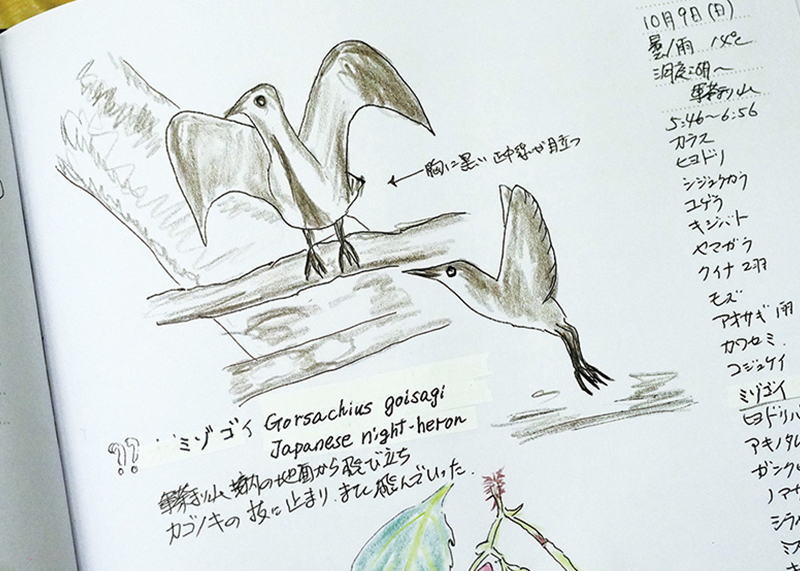 胸に黒い正中線が目立つ
?? ミゾゴイ Gorsachius goisagi
Japanese night-heron
軍荼利山、境内の地面から飛び立ち
カゴノキの枝に止まり、また飛んでいった。
10月9日(日)
曇/雨 14℃
洞庭湖〜
軍荼利山
5:46〜6:56
カラス
ヒヨドリ
シジュウカラ
コゲラ
キジバト
ヤマガラ
クイナ 2羽
モズ
アオサギ 1羽
カワセミ
コジュケイ
ミゾゴイ
ヒヨドリバ
アキノタム
ガンクビ
ノアザ
シラ
ミズ
キ